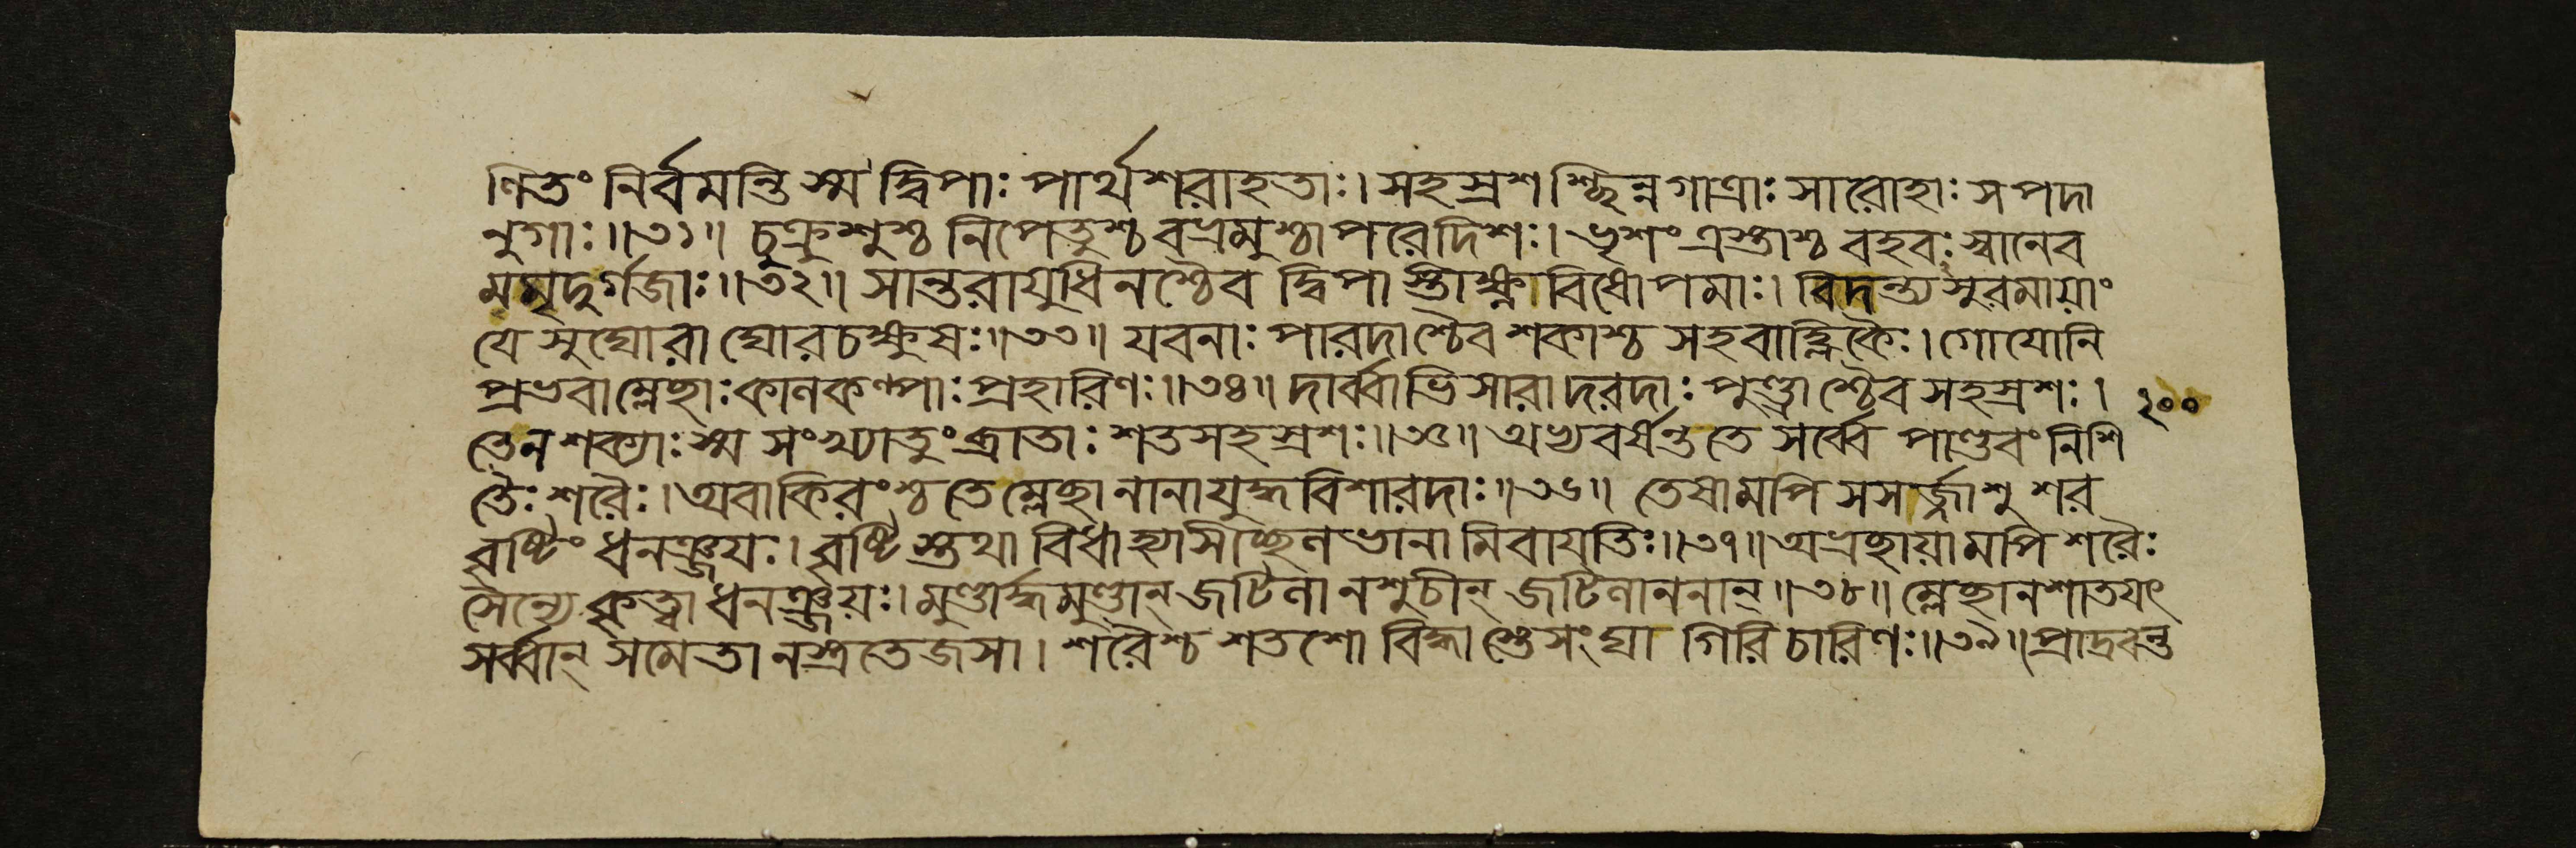 ণিতং নির্বমন্তি স্ম দ্বিপাঃ পার্থশরাহতাঃ। সহস্রশশ্ছিন্নগাত্রাঃ সারোহাঃ সপদা
নুগাঃ॥৩১॥ চুক্রুশুশ্চ নিপেতুশ্চ বভ্রমুশ্চাপরেদিশঃ। ভৃশং ত্রস্তাশ্চ বহবঃ স্বানেব
মমৃদুর্গজাঃ॥৩২॥ সান্তরাযুধিনশ্চৈব দ্বিপাস্তীক্ষ্ণাবিষোপমাঃ। বিদন্ত্যসুরমায়াং
যে সুঘোরাঘোরচক্ষুষঃ॥৩৩॥ যবনাঃ পারদাশ্চৈব শকাশ্চ সহবাহ্লিকৈঃ। গোযোনি
প্রভবাম্লেছাঃ কালকল্পাঃ প্রহারিণঃ॥৩৪॥ দার্ব্বাভিসারাদরদাঃ পুণ্ড্রাশ্চৈব সহস্রশঃ। ২০০
তেন শক্যাঃ স্ম সংখ্যাতুং ব্রাতাঃ শতসহস্রশঃ॥৩৫॥ অভ্যবর্ষন্ত তে সর্ব্বে পাণ্ডবং নিশি
তৈঃ শরৈঃ। অবাকিরংশ্চ তে ম্লেছা নানাযুদ্ধবিশারদাঃ॥৩৬॥ তেষামপি সসর্জ্জাশু শর
বৃষ্টিং ধনঞ্জয়ঃ। বৃষ্টিস্তুথাবিধাহ্যাসীচ্ছলভানামিবাযতিঃ॥৩৭॥ অভ্রছায়ামপি শরৈঃ
সৈন্যে কৃত্বা ধনঞ্জয়ঃ। মুণ্ডার্দ্ধমুণ্ডান্ জটিলানশুচীন্ জটিলাননান্॥৩৮॥ ম্লেছানশাতযৎ
সর্ব্বান্ সমেতানস্ত্রতেজসা। শরৈশ্চ শতশো বিদ্ধাস্তেসংঘা গিরিচারিণঃ॥৩৯॥ প্রাদ্রবন্ত